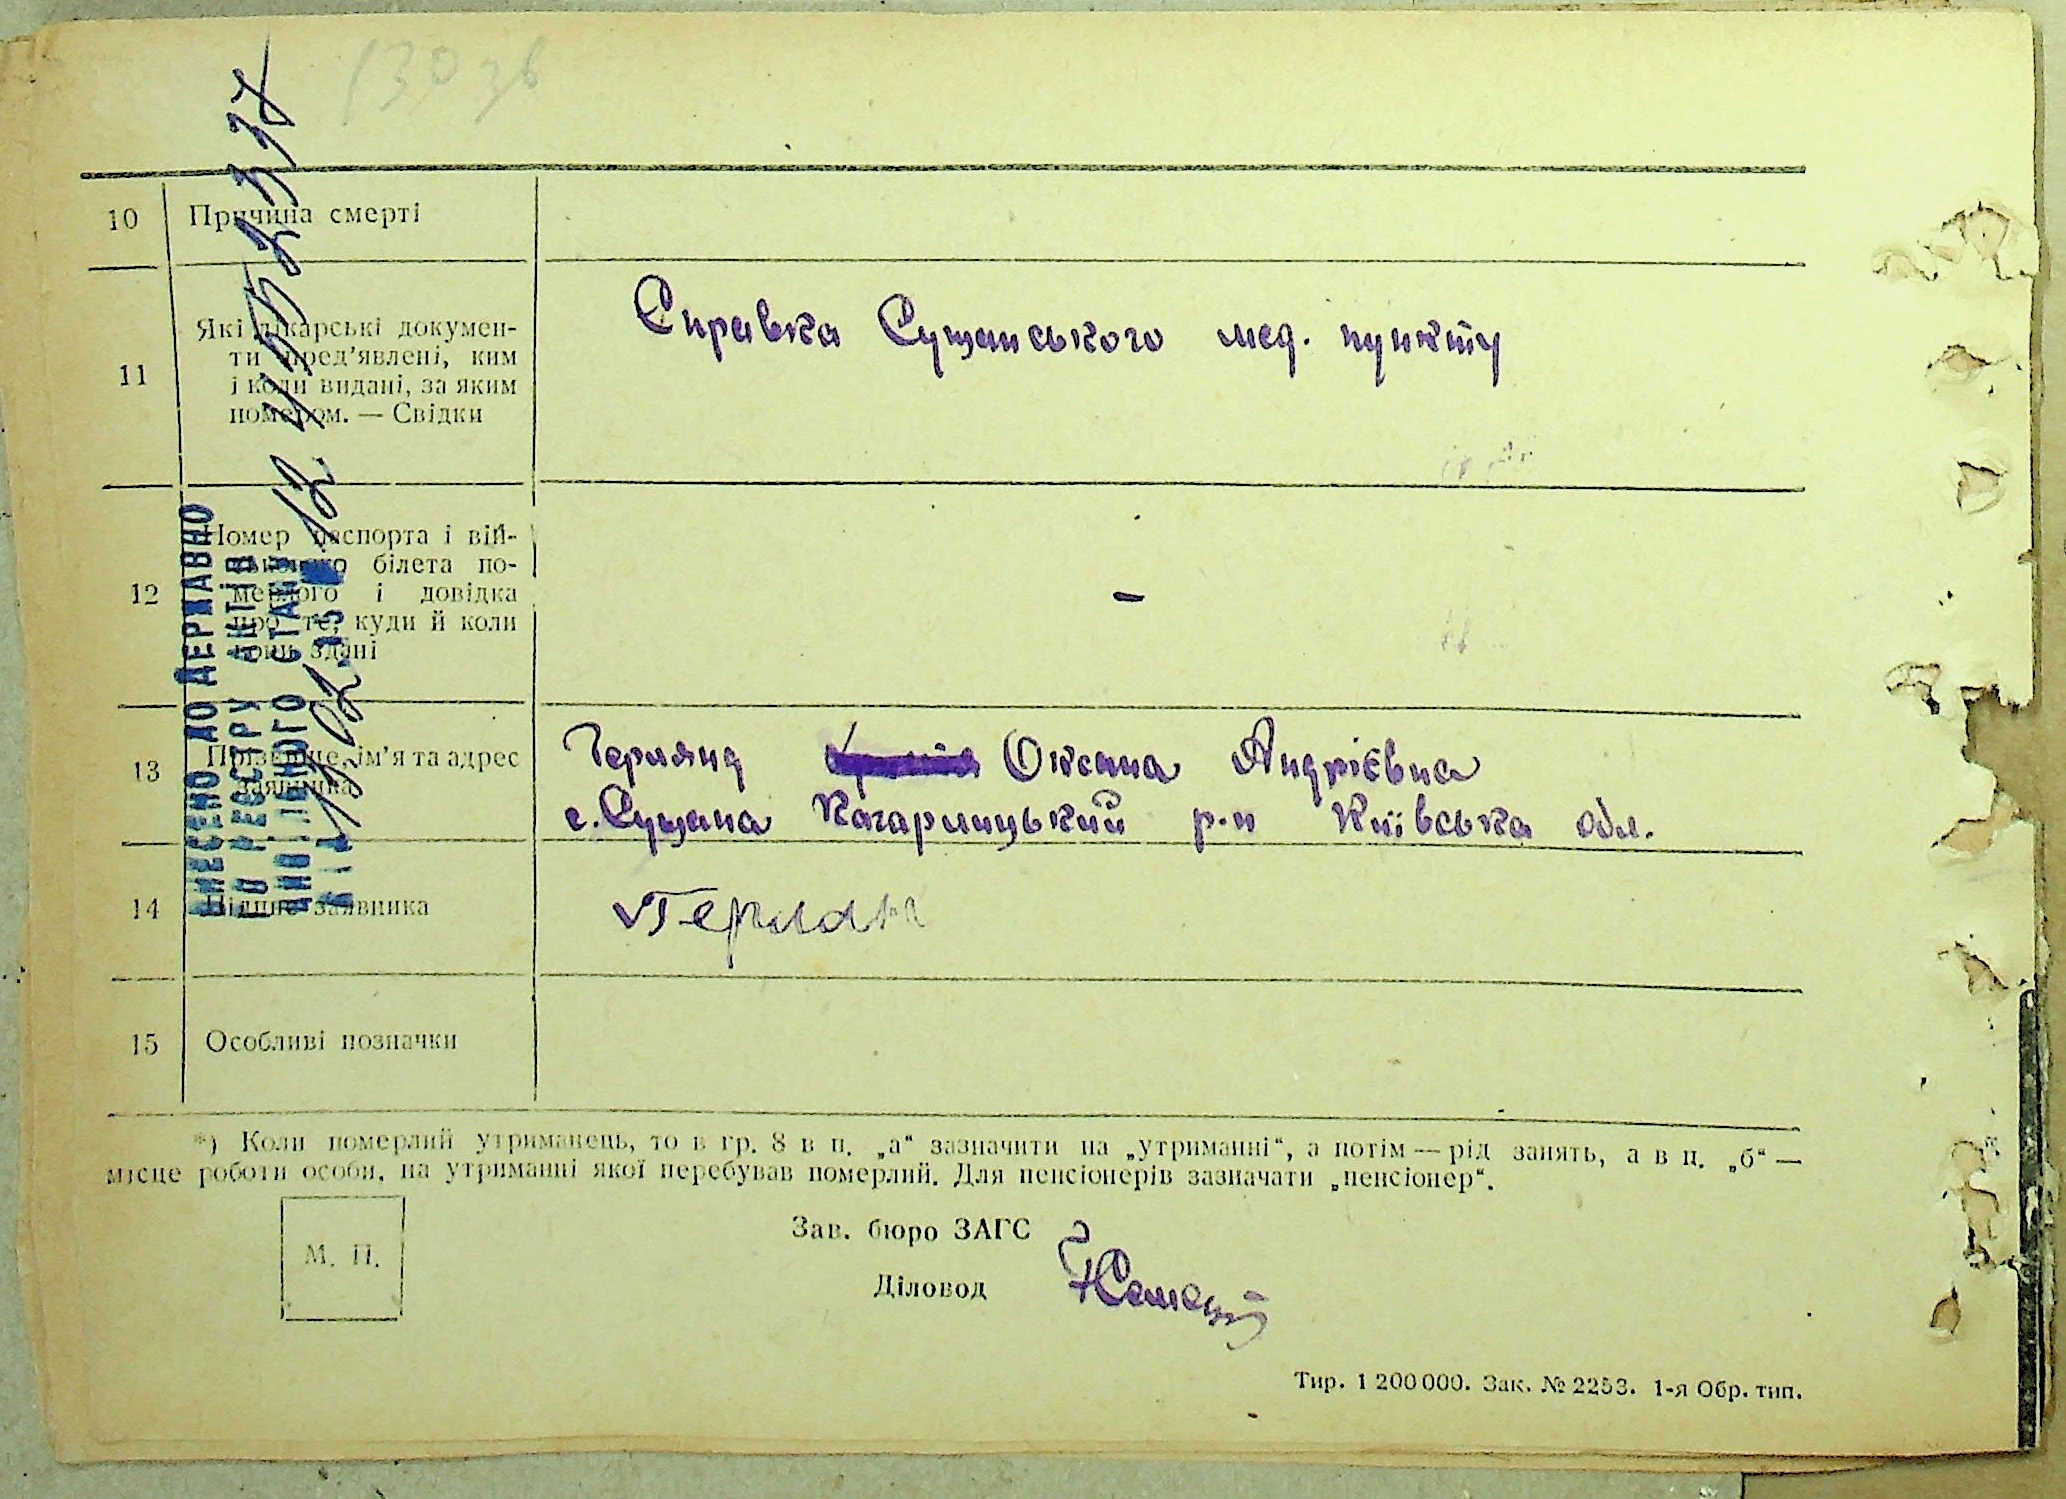 130 зв
10 Причина смерті
11 Які лікарські докумен-
ти пред’явлені, ким
і коли видані, за яким
номером. — Свідки
Справка Сущанського мед. пункту
12 Номер паспорта і вій-
ськового білета по-
мерлого і довідка
про те, куди й коли
вони здані
–
13 Прізвище, ім’я та адрес
заявника
Оксана Андрієвна
с. Сущана Кагарлицький р-н Київська обл.
14 Підпис заявника
15 Особливі позначки
*) Коли померлий утриманець, то в гр. 8 в п. „а“ зазначити на „утриманні“, а потім — рід занять, а в п. „б“ —
місце роботи особи, на утриманні якої перебував померлий. Для пенсіонерів зазначати „пенсіонер“.
М. П.
Зав. бюро ЗАГС
Діловод
Тир. 1 200 000. Зак. № 2253. 1-я Обр. тип.
ВНЕСЕНО ДО ДЕРЖАВНО
ГО РЕЄСТРУ АКТІВ
ЦИВІЛЬНОГО СТАНУ